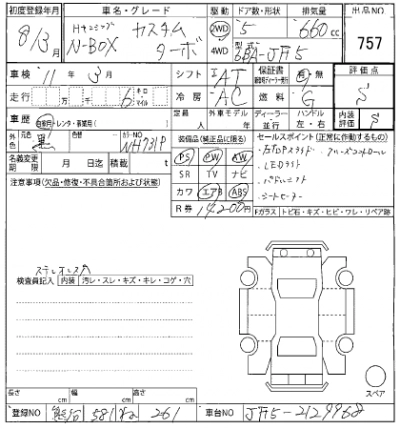 初度登録年月 車名・グレード 駆動 ドア数・形状 排気量 出品NO
8/3月 N-BOX カスタム ターボ 2WD 4WD 5 660cc 757
型式 DBA-JF5
車検 11年 3月 シフト AT 保証書 有・無 評価点 S
走行 万 千 6 キロ・マイル 冷房 AC 燃料 G
車歴 自家用・レンタ・事業用( ) 定員 人 外車モデル 年 ディーラー・並行 ハンドル 左・右 内装評価 S
外色 黒 色替 カラーNO NH731P 装備品(純正品に限る) セールスポイント(正常に作動するもの)
名義変更期限 月 日迄 積載 t PS PW AW
SR TV ナビ ・LEDライト
カワ エアB ABS ・パドルシフト
・シートヒーター
注意事項(欠品・修復・不具合箇所および状態)
R券 Fガラス トビ石・キズ・ヒビ・ワレ・リペア跡
検査員記入 内装 汚レ・スレ・キズ・キレ・コゲ・穴
スペア
長さ cm 幅 cm 高さ cm
登録NO 熊谷 581 ね 261 車台NO JF5-2129968